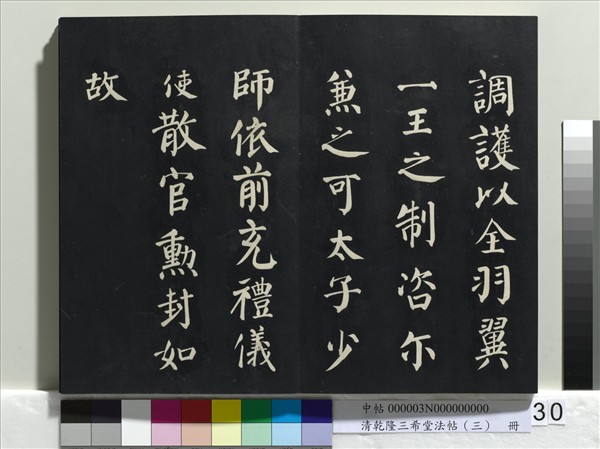 調護以全羽翼
一王之制咨尓
兼之可太子少
師依前充禮儀
使散官勲封如
故
中帖 000003N000000000
清乾隆三希堂法帖（三） 冊
30